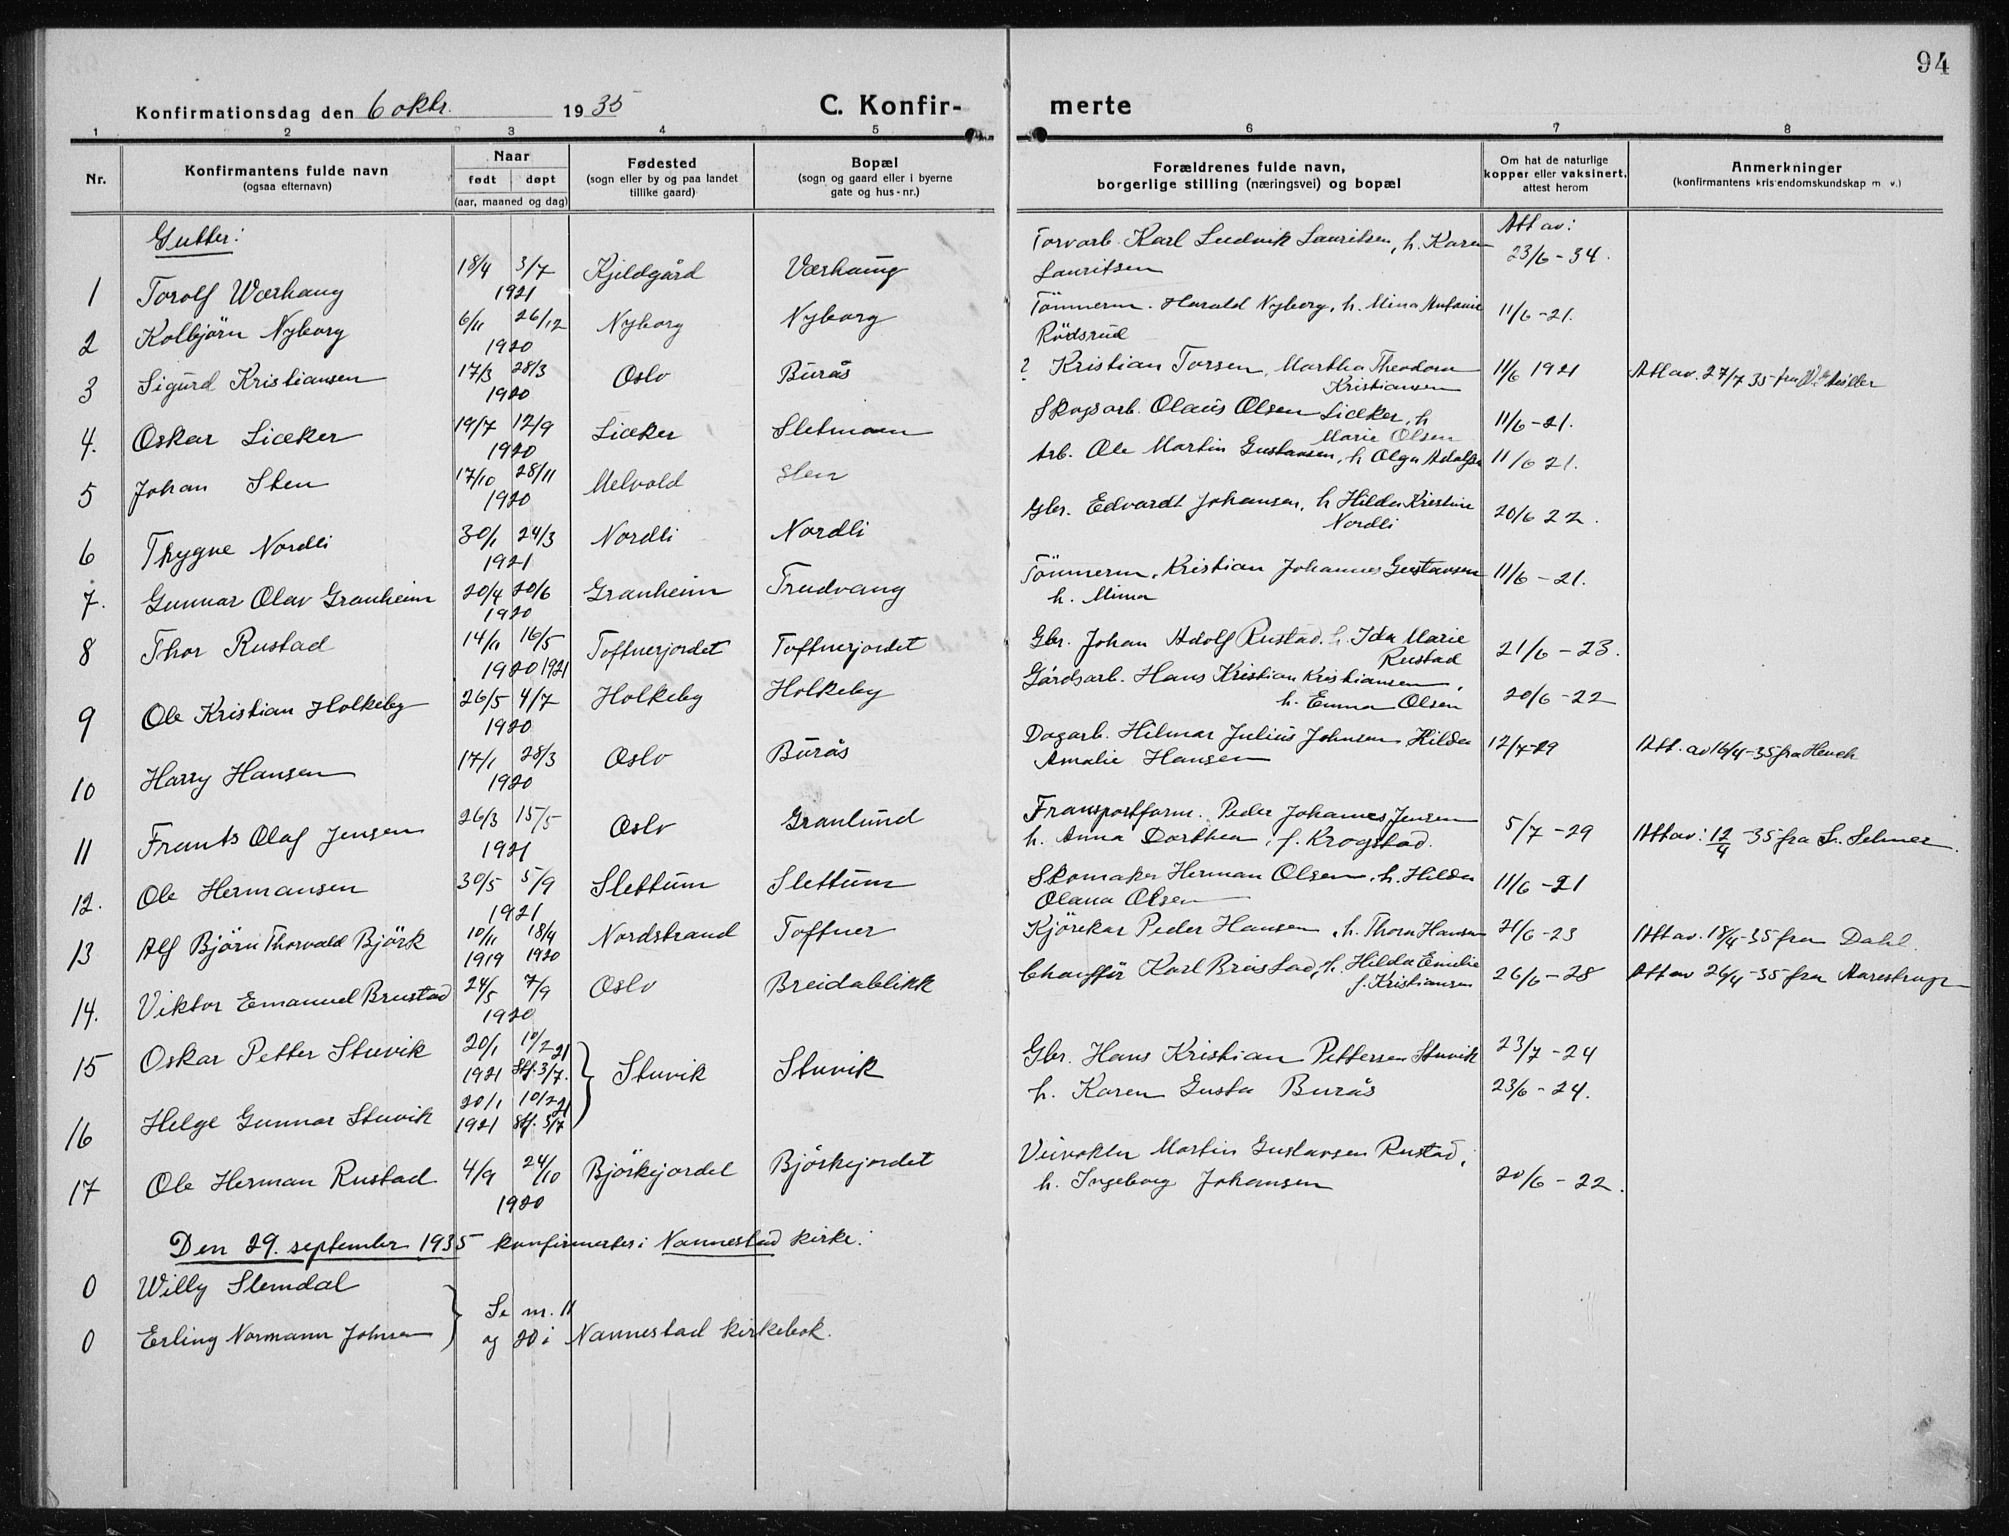 94
Konfirmationsdag den 6 oktr. 1935 C. Konfir- merte
1 2 3 4 5 6 7 8
Nr. Konfirmantens fulde navn (ogsaa efternavn) Naar født døpt (aar, maaned og dag) Fødested (sogn eller by og paa landet tillike gaard) Bopæl (sogn og gaard eller i byerne gate og hus-nr.) Forældrenes fulde navn, borgerlige stilling (næringsvei) og bopæl Om hat de naturlige kopper eller vaksinert, attest herom Anmerkninger (konfirmantens kristendomskundskap m. v.)
Gutter:
1 Torolf Wærhaug 18/4 3/7 1921 Kjeldgård Værhaug Torvarb. Karl Ludvik Lauritsen, h. Karen Lauritsen Att av: 23/6-34.
2 Kolbjörn Nyborg 6/11 26/12 1920 Nyborg Nyborg Tömmerm. Harald Nyborg, h. Mina Antonie Rödsrud 11/6-21.
3 Sigurd Kristiansen 17/3 28/3 1920 Oslo Burås ? Kristian Torsen, Martha Theodora Kristiansen 11/6 1921 Att av. 27/7 35 fra Möller
4. Oskar Liæker 19/7 12/9 1920 Liæker Sletmoen Skogsarb. Olaus Olsen Liæker, h Marie Olsen 11/6-21.
5 Johan Sten 17/10 28/11 1920 Melvold Sten Arb. Ole Martin Gustavsen, h Olga Adolfsen 11/6 21.
6 Thygve Nordli 30/1 24/3 1921 Nordli Nordli Gbr. Edvardt Johansen, h Hilda Kristine Nordli 20/6 22.
7. Gunnar Olav Granheim 20/4 20/6 1920 Granheim Trudvang Tömmerm. Kristian Johannes Gustavsen h. Mima 11/6-21.
8 Thor Rustad 14/11 16/5 1920 1921 Toftnerjordet Toftnerjordet Gbr. Johan Adolf Rustad. h. Ida Marie Rustad 21/6-23.
9 Ole Kristian Holkeby 26/5 4/7 1920 Holkeby Holkeby Gårdsarb. Hans Kristian Kristiansen, h. Emma Olsen 20/6-22
10 Harry Hansen 17/1 28/3 1920 Oslo Burås Dagarb. Hilmar Julius Johnsen Hilda Amalie Hansen 12/7-29 Att. av 16/4-35 fra Heuch
11 Frants Olaf Jensen 26/3 15/5 1921 Oslo Granlund Transportform. Peder Johannes Jensen h. Anna Dorthea, f. Krogstad. 5/7-29 Att av: 12/4-35 fra S. Selmer.
12. Ole Hermansen 30/5 5/9 1921 Slettum Slettum Skomaker Herman Olsen, h. Hilda Olana Olsen 11/6-21
13 Alf Björn Thorvald Björk 10/11 18/4 1919 1920 Nordstrand Toftner Kjörekar Peder Hansen, h. Thora Hansen 21/6-23 Att av. 18/4-35 fra Dahl.
14. Viktor Emanuel Brustad 24/5 7/9 1920 Oslo Breidablikk Chaufför Karl Brustad, h. Hilda Emilie f. Kristiansen 26/6-28 Att av 26/4-35 fra Aarestrup
15 Oskar Petter Stuvik 20/1 1921 10/2 21 Stf. 3/7. Stuvik Stuvik Gbr. Hans Kristian Pettersen Stuvik 23/7-24
16 Helge Gunnar Stuvik 20/1 1921 10/2 21 Stf. 3/7 h. Karen Gusta Burås 23/6-24.
17 Ole Herman Rustad 4/9 24/10 1920 Björkejordet Björkejordet Veivokter Martin Gustavsen Rustad, h. Ingeborg Johansen 20/6-22.
Den 29. september 1935 konfirmertes i Nannestad kirke:
0 Willy Slemdal
0 Erling Normann Johnsen } Se nr. 11 og 20 i Nannestad kirkebok.